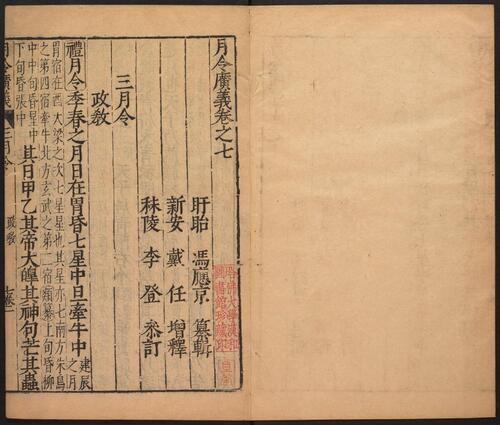 月令廣義卷之七
盱眙 馮應京 纂輯
新安 戴 任 增釋
秣陵 李 登 叅訂
三月令
政教
禮月令季春之月日在胃昏七星中旦牽牛中
建辰
之月
胃宿在西大梁之次七星星也其星亦七南方朱鳥
之第四宿牽牛北方玄武之第二宿
上旬昏柳
中中旬昏星中
下旬昏張中
其日甲乙其帝大皥其神句芒其蟲
月令廣義
三月令
政教
哈佛大學漢和
圖書館珍藏印